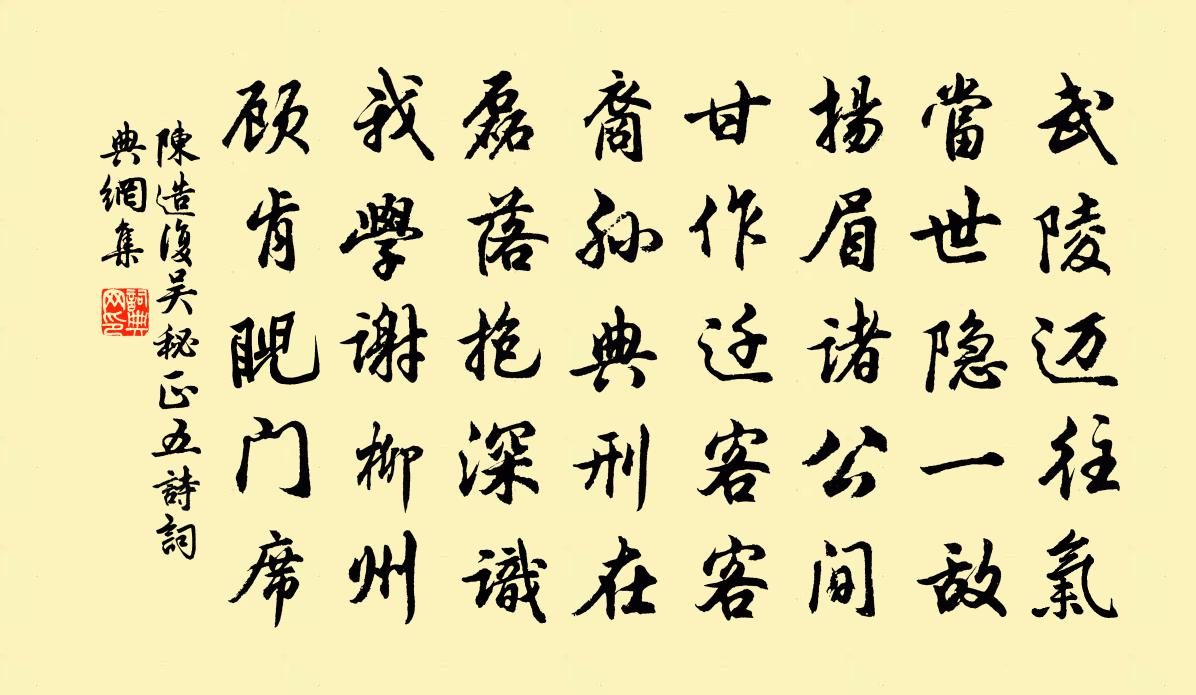 武陵迈往氣
當世隐一敌
揚眉诸公间
甘作迁客客
裔孙典刑在
磊落抱深識
我學谢柳州
顾肯睨门席
陳造復吴秘正五詩詞
典網集
詞典
网印